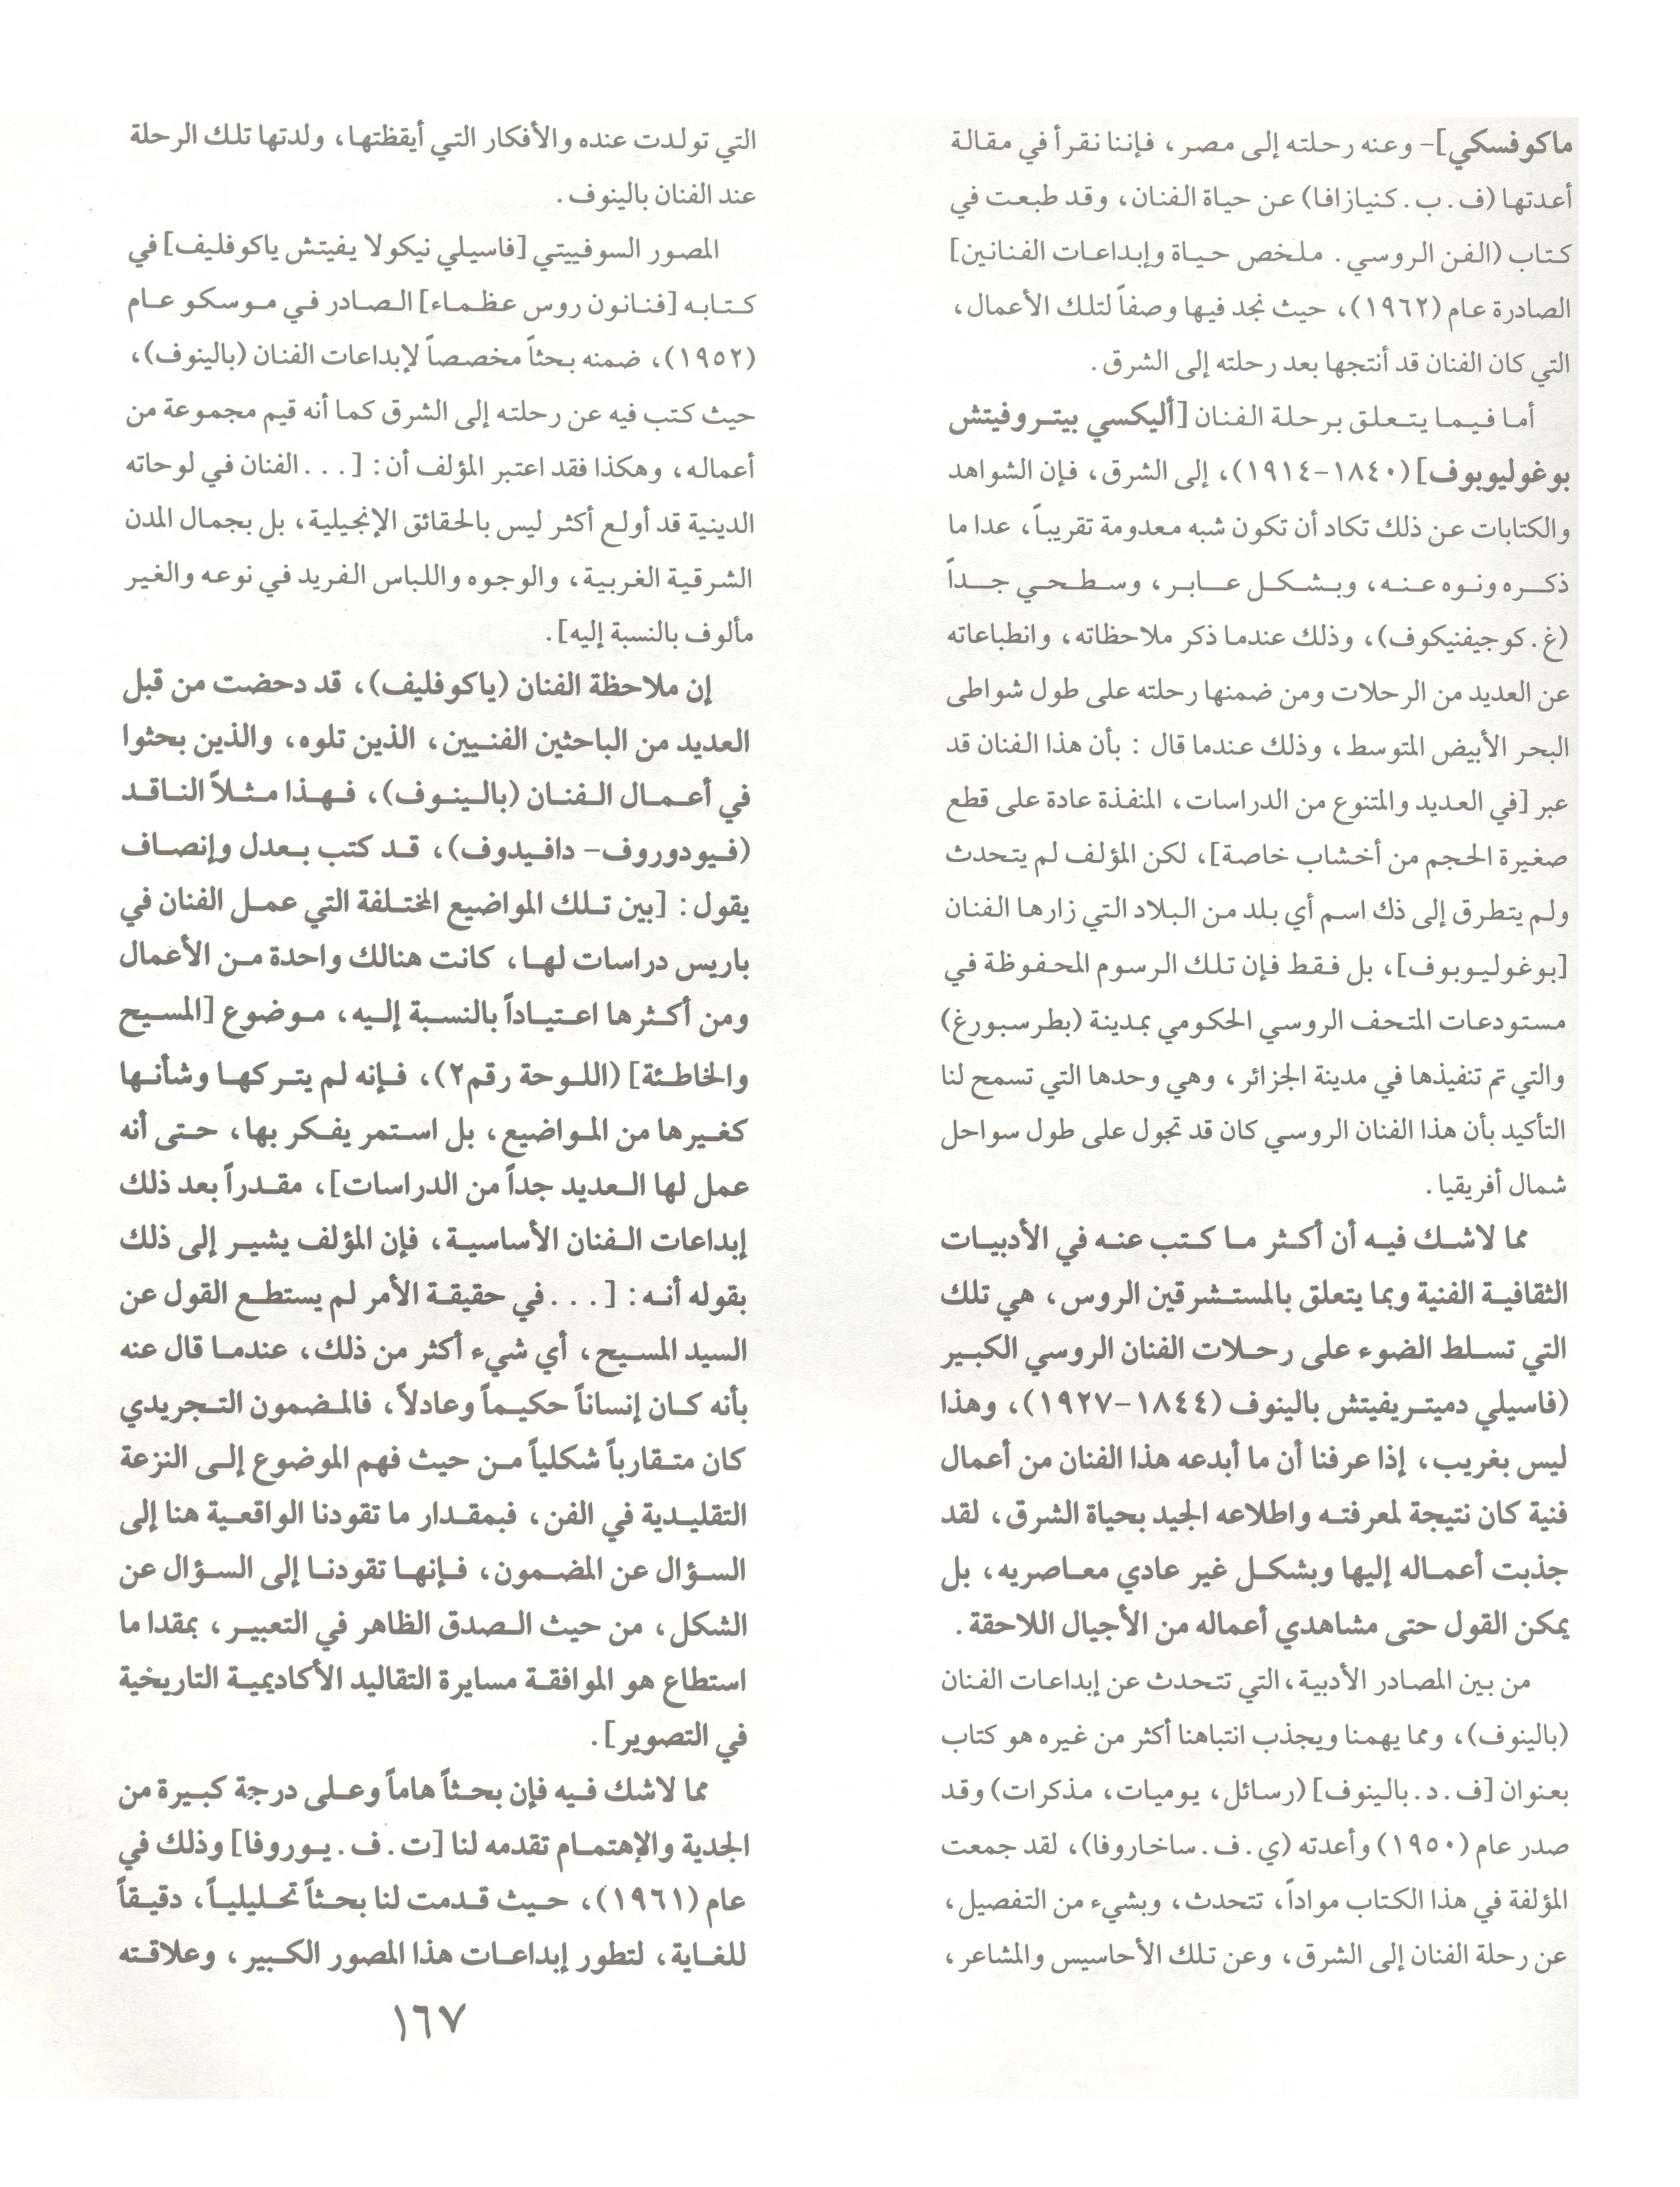 ماكوفسكي]- وعنه رحلته إلى مصر، فإننا نقرأ في مقالة
أعدتها (ف. ب. كنيازافا) عن حياة الفنان، وقد طبعت في
كتاب (الفن الروسي. ملخص حياة وإبداعات الفنانين]
الصادرة عام (١٩٦٢)، حيث نجد فيها وصفاً لتلك الأعمال،
التي كان الفنان قد أنتجها بعد رحلته إلى الشرق.
أما فيما يتعلق برحلة الفنان [أليكسي بيتروفيتش
بوغوليوبوف] (١٨٤٠-١٩١٤)، إلى الشرق، فإن الشواهد
والكتابات عن ذلك تكاد أن تكون شبه معدومة تقريباً، عدا ما
ذكره ونوه عنه، وبشكل عابر، وسطحي جداً
(غ. كوجيفنيكوف)، وذلك عندما ذكر ملاحظاته، وانطباعاته
عن العديد من الرحلات ومن ضمنها رحلته على طول شواطى
البحر الأبيض المتوسط، وذلك عندما قال : بأن هذا الفنان قد
عبر [في العديد والمتنوع من الدراسات، المنفذة عادة على قطع
صغيرة الحجم من أخشاب خاصة]، لكن المؤلف لم يتحدث
ولم يتطرق إلى ذك اسم أي بلد من البلاد التي زارها الفنان
[بوغوليوبوف]، بل فقط فإن تلك الرسوم المحفوظة في
مستودعات المتحف الروسي الحكومي بمدينة (بطرسبورغ)
والتي تم تنفيذها في مدينة الجزائر، وهي وحدها التي تسمح لنا
التأكيد بأن هذا الفنان الروسي كان قد تجول على طول سواحل
شمال أفريقيا.
مما لاشك فيه أن أكثر ما كتب عنه في الأدبيات
الثقافية الفنية وبما يتعلق بالمستشرقين الروس، هي تلك
التي تسلط الضوء على رحلات الفنان الروسي الكبير
(فاسيلي دميتريفيتش بالينوف (١٨٤٤-١٩٢٧)، وهذا
ليس بغريب، إذا عرفنا أن ما أبدعه هذا الفنان من أعمال
فنية كان نتيجة لمعرفته واطلاعه الجيد بحياة الشرق، لقد
جذبت أعماله إليها وبشكل غير عادي معاصريه، بل
يمكن القول حتى مشاهدي أعماله من الأجيال اللاحقة.
من بين المصادر الأدبية،التي تتحدث عن إبداعات الفنان
(بالينوف)، ومما يهمنا ويجذب انتباهنا أكثر من غيره هو كتاب
بعنوان [ف. د. بالينوف] (رسائل، يوميات، مذكرات) وقد
صدر عام (١٩٥٠) وأعدته (ي. ف. ساخاروفا)، لقد جمعت
المؤلفة في هذا الكتاب مواداً، تتحدث، وبشيء من التفصيل،
عن رحلة الفنان إلى الشرق، وعن تلك الأحاسيس والمشاعر،
التي تولدت عنده والأفكار التي أيقظتها، ولدتها تلك الرحلة
عند الفنان بالينوف.
المصور السوفييتي [فاسيلي نيكولا يفيتش ياكوفليف] في
كتابه [فنانون روس عظماء] الصادر في موسكو عام
(١٩٥٢)، ضمنه بحثاً مخصصاً لإبداعات الفنان (بالينوف)،
حيث كتب فيه عن رحلته إلى الشرق كما أنه قيم مجموعة من
أعماله، وهكذا فقد اعتبر المؤلف أن: [... الفنان في لوحاته
الدينية قد أولع أكثر ليس بالحقائق الإنجيلية، بل بجمال المدن
الشرقية الغربية، والوجوه واللباس الفريد في نوعه والغير
مألوف بالنسبة إليه].
إن ملاحظة الفنان (ياكوفليف)، قد دحضت من قبل
العديد من الباحثين الفنيين، الذين تلوه، والذين بحثوا
في أعمال الفنان (بالينوف)، فهذا مثلاً الناقد
(فيودوروف- دافيدوف)، قد كتب بعدل وإنصاف
يقول: [بين تلك المواضيع المختلفة التي عمل الفنان في
باريس دراسات لها، كانت هنالك واحدة من الأعمال
ومن أكثرها اعتياداً بالنسبة إليه، موضوع [المسيح
والخاطئة] (اللوحة رقم٢)، فإنه لم يتركها وشأنها
كغيرها من المواضيع، بل استمر يفكر بها، حتى أنه
عمل لها العديد جداً من الدراسات]، مقدراً بعد ذلك
إبداعات الفنان الأساسية، فإن المؤلف يشير إلى ذلك
بقوله أنه: [... في حقيقة الأمر لم يستطع القول عن
السيد المسيح، أي شيء أكثر من ذلك، عندما قال عنه
بأنه كان إنساناً حكيماً وعادلاً، فالمضمون التجريدي
كان متقارباً شكلياً من حيث فهم الموضوع إلى النزعة
التقليدية في الفن، فبمقدار ما تقودنا الواقعية هنا إلى
السؤال عن المضمون، فإنها تقودنا إلى السؤال عن
الشكل، من حيث الصدق الظاهر في التعبير، بمقدا ما
استطاع هو الموافقة مسايرة التقاليد الأكاديمية التاريخية
في التصوير].
مما لاشك فيه فإن بحثاً هاماً وعلى درجة كبيرة من
الجدية والإهتمام تقدمه لنا [ت. ف. يوروفا] وذلك في
عام (١٩٦١)، حيث قدمت لنا بحثاً تحليلياً، دقيقاً
للغاية، لتطور إبداعات هذا المصور الكبير، وعلاقته
١٦٧